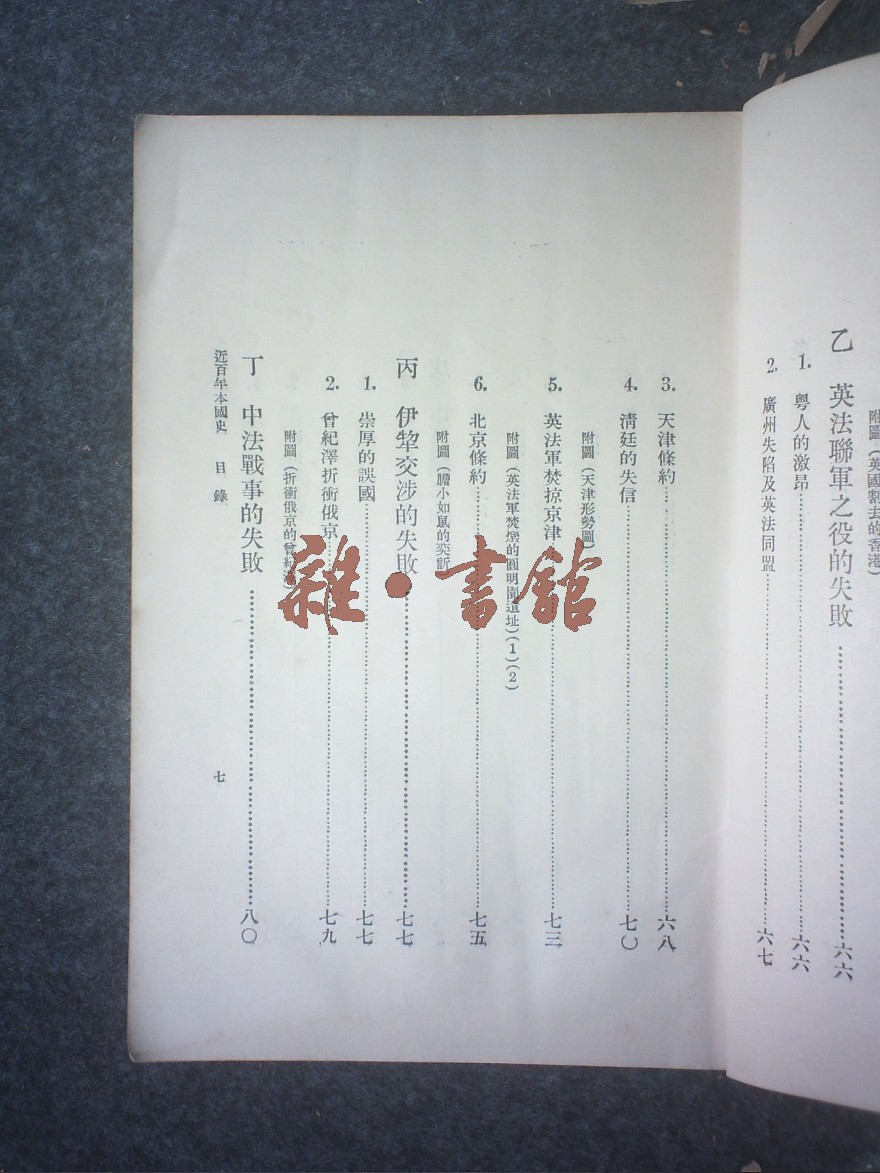 附圖(英國割去的香港)
乙 英法聯軍之役的失敗……六六
1. 粵人的激昂……六六
2. 廣州失陷及英法同盟……六七
3. 天津條約……六八
4. 清廷的失信……七〇
附圖(天津形勢圖)
5. 英法軍焚掠京津……七三
附圖(英法軍焚燬的圓明園遺址)(1)(2)
6. 北京條約……七五
附圖(膽小如鼠的奕訢)
丙 伊犂交涉的失敗……七七
1. 崇厚的誤國……七七
2. 曾紀澤折衝俄京……七九
附圖(折衝俄京的曾紀澤)
丁 中法戰事的失敗……八〇
近百年本國史 目錄 七
雜·書館